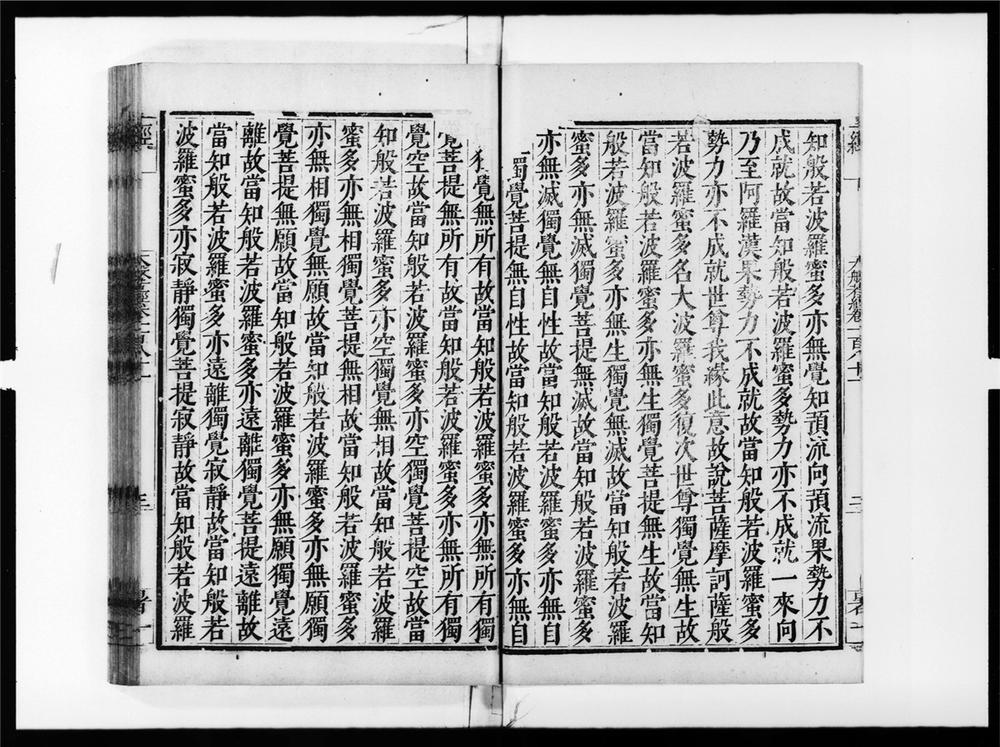 知般若波羅蜜多亦無覺知預流向預流果勢力不
成就故當知般若波羅蜜多勢力亦不成就一來向
乃至阿羅漢果勢力不成就故當知般若波羅蜜多
勢力亦不成就世尊我緣此意故說菩薩摩訶薩般
若波羅蜜多名大波羅蜜多復次世尊獨覺無生故
當知般若波羅蜜多亦無生獨覺菩提無生故當知
般若波羅蜜多亦無生獨覺無滅故當知般若波羅
蜜多亦無滅獨覺菩提無滅故當知般若波羅蜜多
亦無滅獨覺無自性故當知般若波羅蜜多亦無自
獨覺菩提無自性故當知般若波羅蜜多亦無自
獨覺無所有故當知般若波羅蜜多亦無所有獨
覺菩提無所有故當知般若波羅蜜多亦無所有獨
覺空故當知般若波羅蜜多亦空獨覺菩提空故當
知般若波羅蜜多亦空獨覺無相故當知般若波羅
蜜多亦無相獨覺菩提無相故當知般若波羅蜜多
亦無相獨覺無願故當知般若波羅蜜多亦無願獨
覺菩提無願故當知般若波羅蜜多亦無願獨覺遠
離故當知般若波羅蜜多亦遠離獨覺菩提遠離故
當知般若波羅蜜多亦遠離獨覺寂靜故當知般若
波羅蜜多亦寂靜獨覺菩提寂靜故當知般若波羅